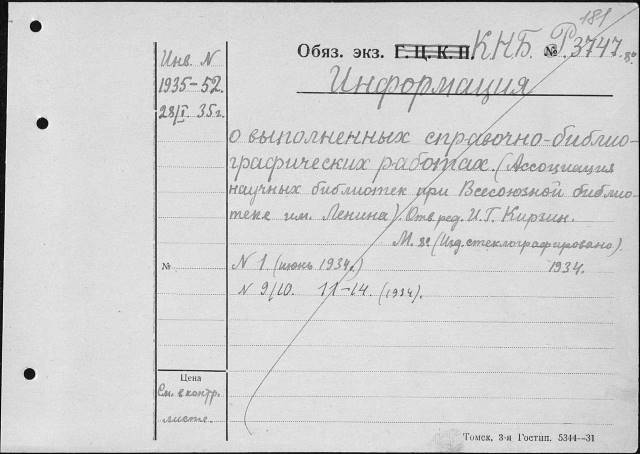 181
Обяз. экз. Г. Ц. К. П. КНБ № Р3747.
Инв. N
1935-52
28/I 35 г.
Информация
о выполненных справочно-библио-
графических работах. (Ассоциация
научных библиотек при Всесоюзной библио-
теке им. Ленина). Отв. ред. И. Г. Киргин.
М. (Изд. стеклографировано).
1934.
№
N 1 (июнь 1934г.)
N 9/10. 11-14. (1934).
Цена
См. в контр.
листе.
Томск, 3-я Гостип. 5344—31